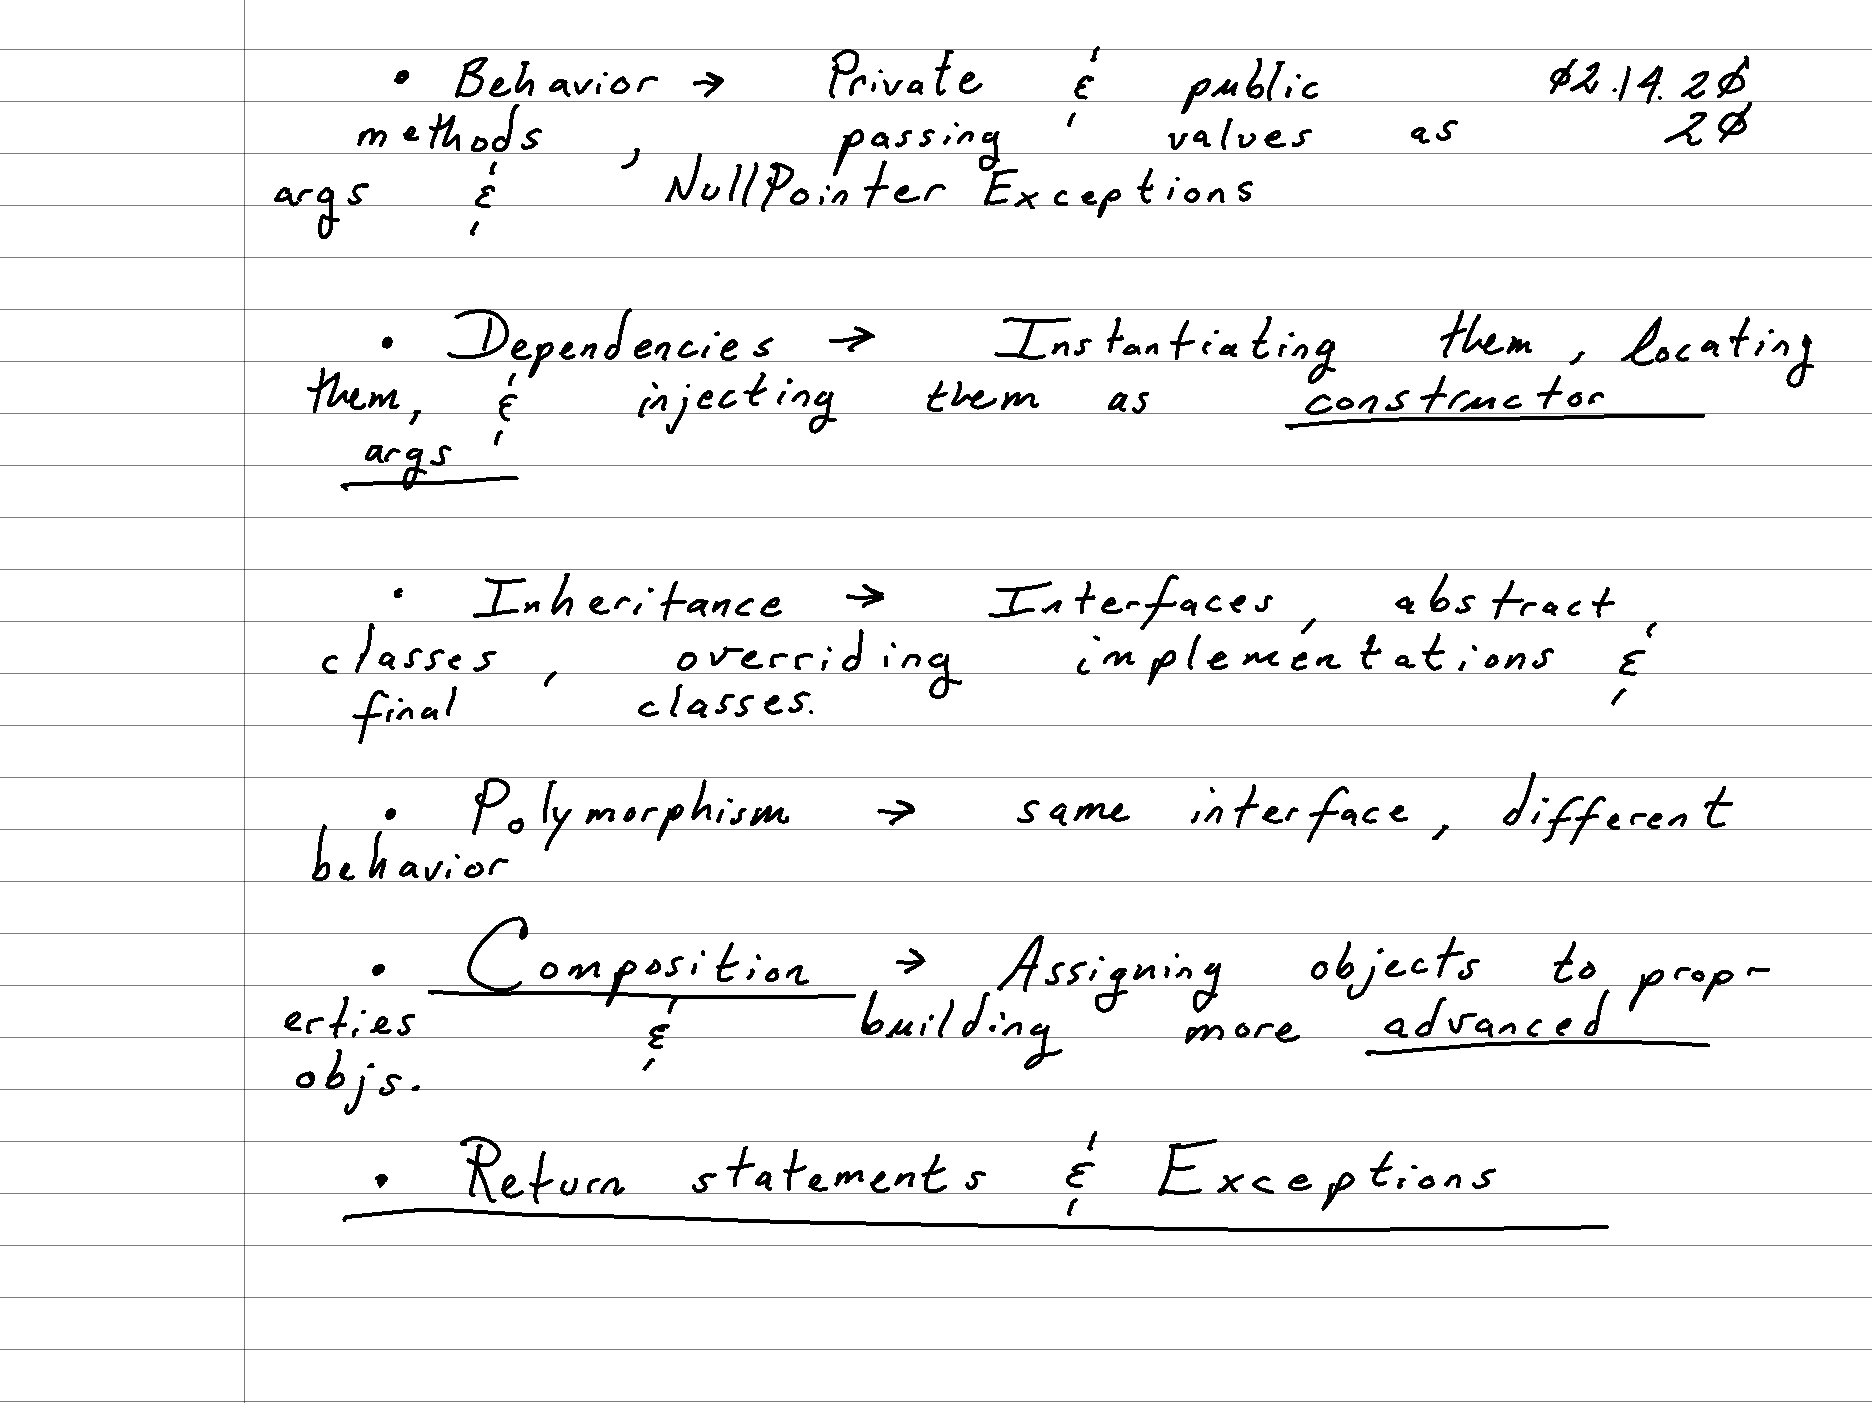 • Behavior → Private & public 02.14.20
methods, passing values as 20
args & NullPointer Exceptions
• Dependencies → Instantiating them, locating
them, & injecting them as constructor
args
• Inheritance → Interfaces, abstract
classes, overriding implementations &
final classes.
• Polymorphism → same interface, different
behavior
• Composition → Assigning objects to prop-
erties & building more advanced
objs.
• Return statements & Exceptions